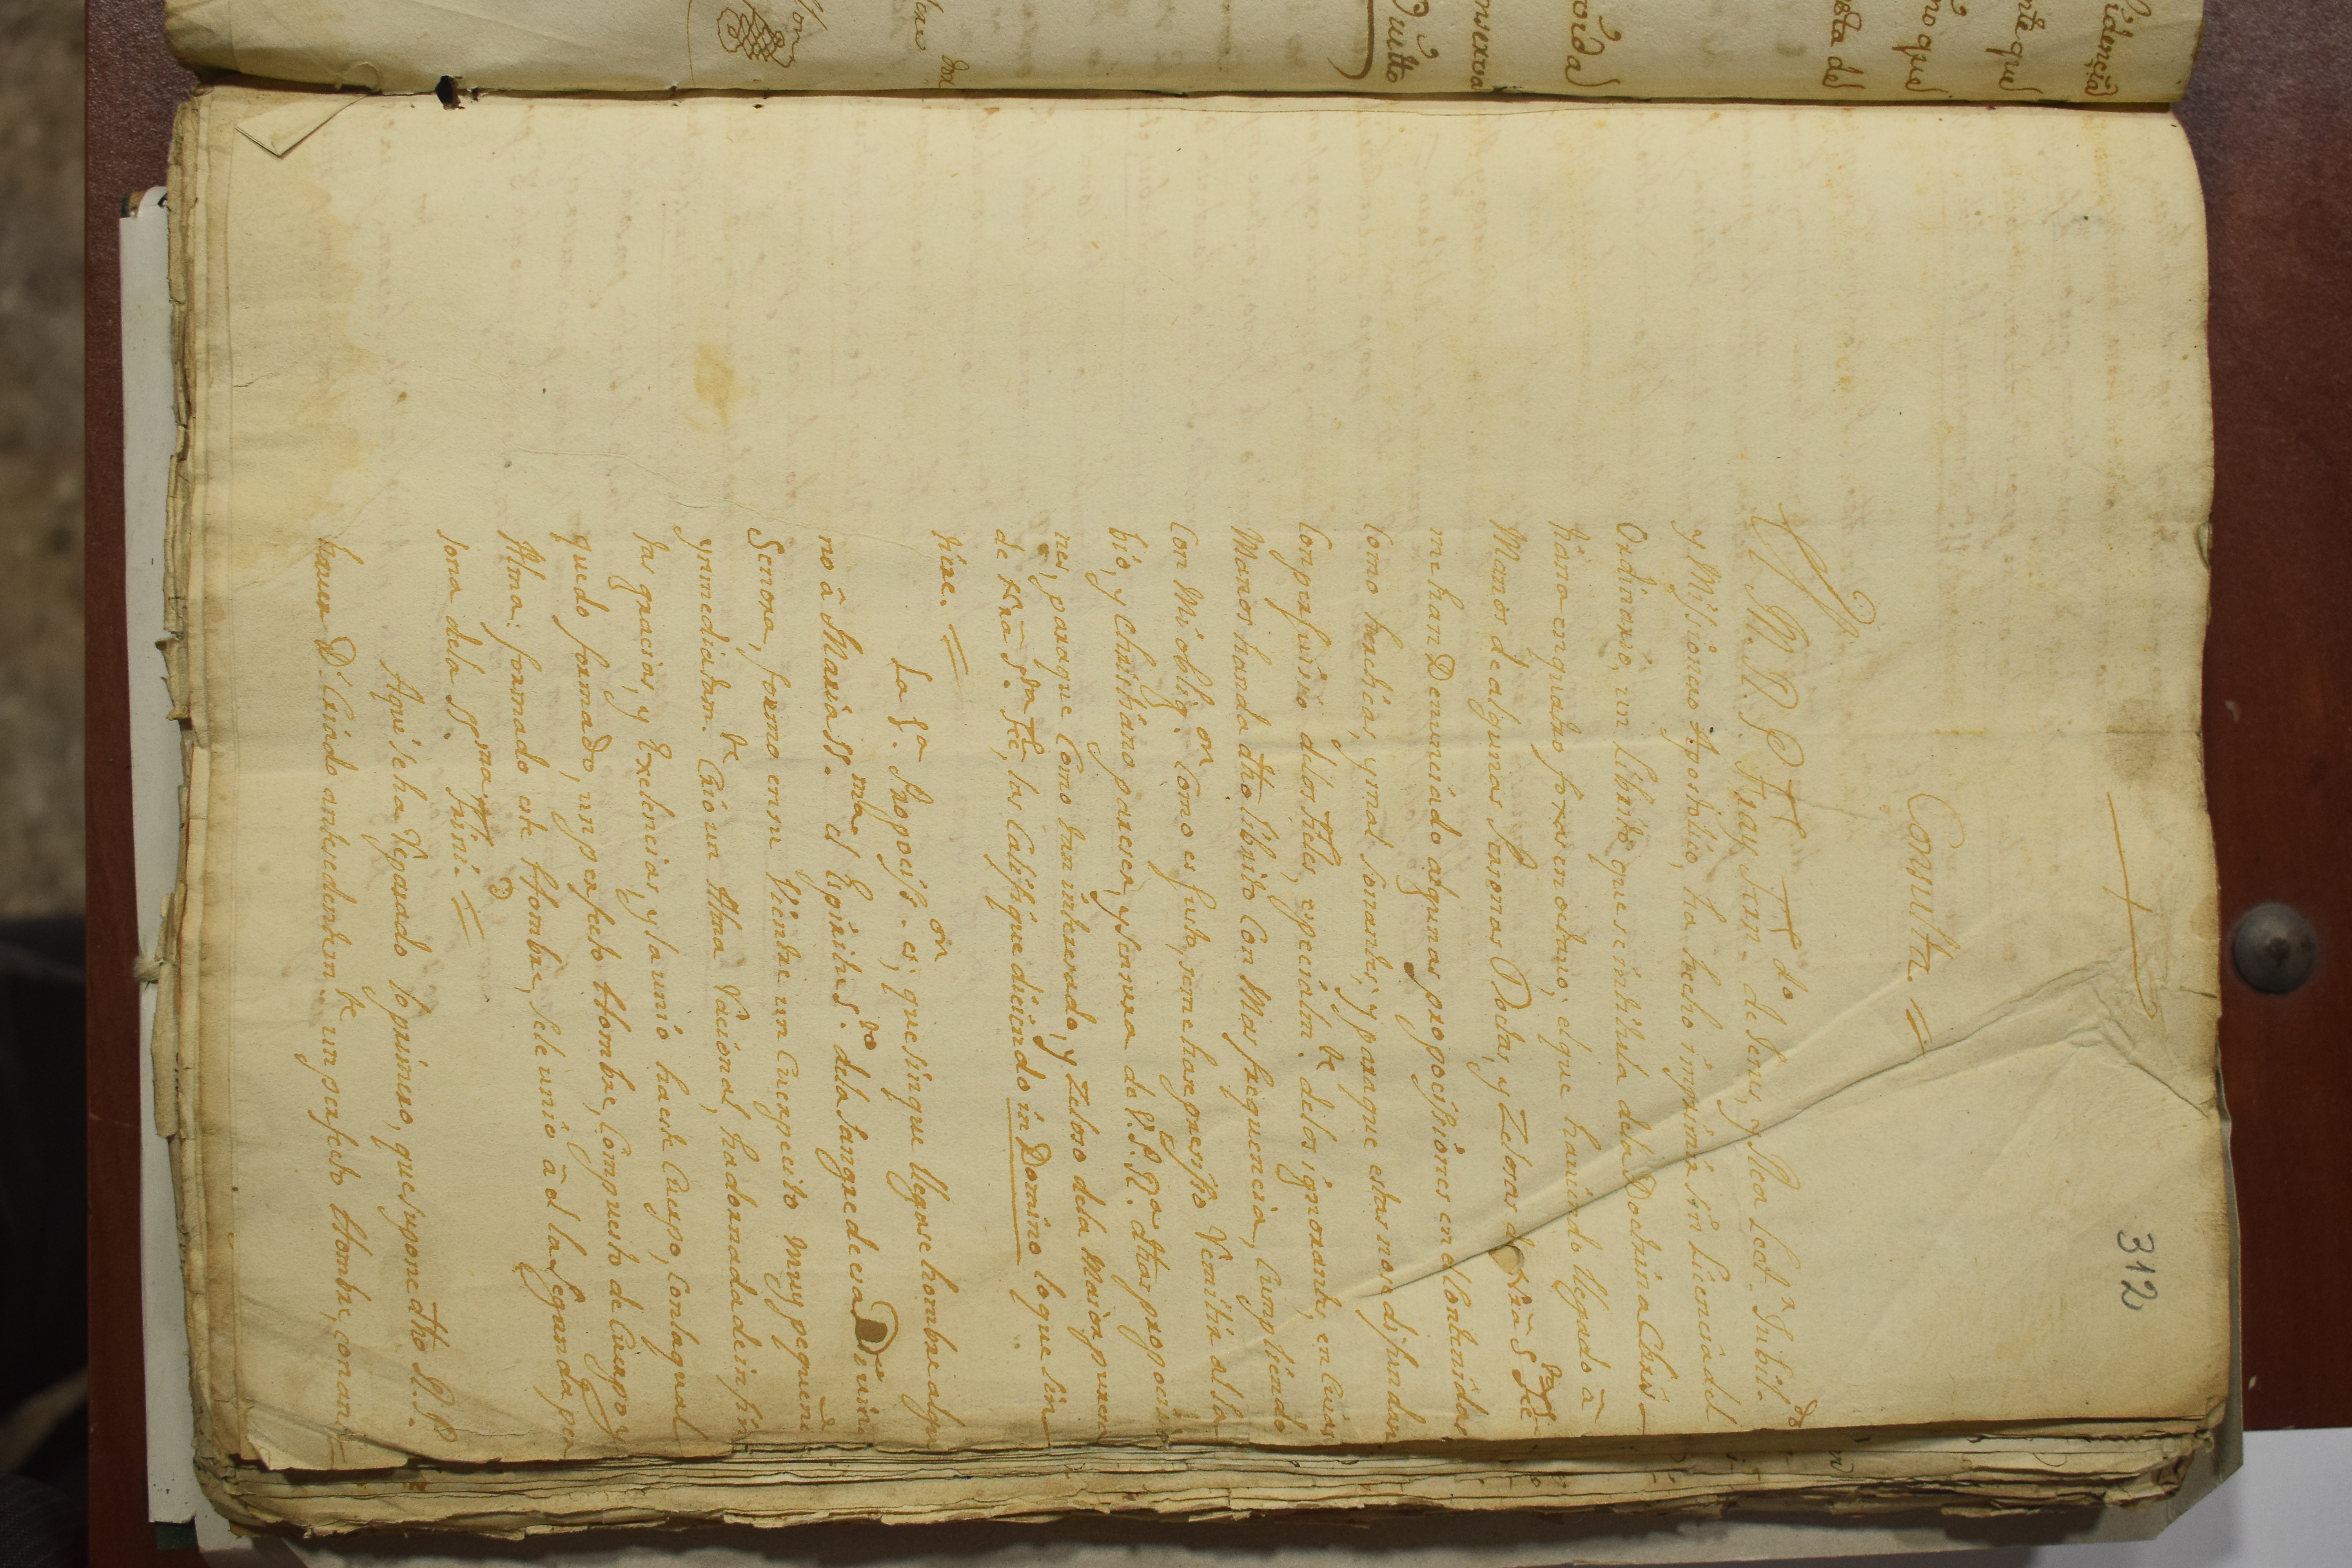 312
Consulta. =
El M. R. P. Fray Juan de Jesus, y Rea Lect.r Jubil.do
y Missionero Apostolico, ha hecho imprimir sin Licencia del
Ordinario, un librito que se intitula dela Doctrina Chris-
tiana en quatro foxas en octavo; el que haviendo llegado à
Manos de algunas Personas Doctas, y Zelosas de Nrã S.ta Feè
me han Denunciado algunas propocissiones en el Contenidas
Como hereticas, y mal sonantes; y para que estas no se difundan
Con perjuisio delos fieles, especialm.te delos ignorantes, en Cuias
Manos handa dho librito Con Mas frequencia, Cumpliendo
Con Mi oblig.on Como es justo, seme hax presisso Remitir al sa
bio, y Christiano pareser, y sensura de V.P.R.a dhas propocisio
nes, para que Como tan intheresado, y Zeloso dela Maior pureza
de Nra S.ta Feè, las Califique diciendo in Domino lo que sin
tiere. =
La 1.a Propociss.on es; que sin que llegase hombre algu
no â Maria SS.ma el Espiritu S.to dela Sangre de esa Divina
Señora, formo en su Vientre un Cuerpecito muy pequeñ
yn mediatam.te Crio un Alma racional, hadornada de infin
tas gracias, y Exelencias, y la unió ha este Cuerpo, Con la qual
quedo formado, un perfecto Hombre, Compuesto de Cuerpo y
Alma: formado este Hombre, sele unió à él la Segunda per
sona dela SS.ma Trini.d =
Aqui se ha Reparado lo primero, que supone dho R. P.
haver D.s Criado antesedentem.te un perfecto Hombre, con an